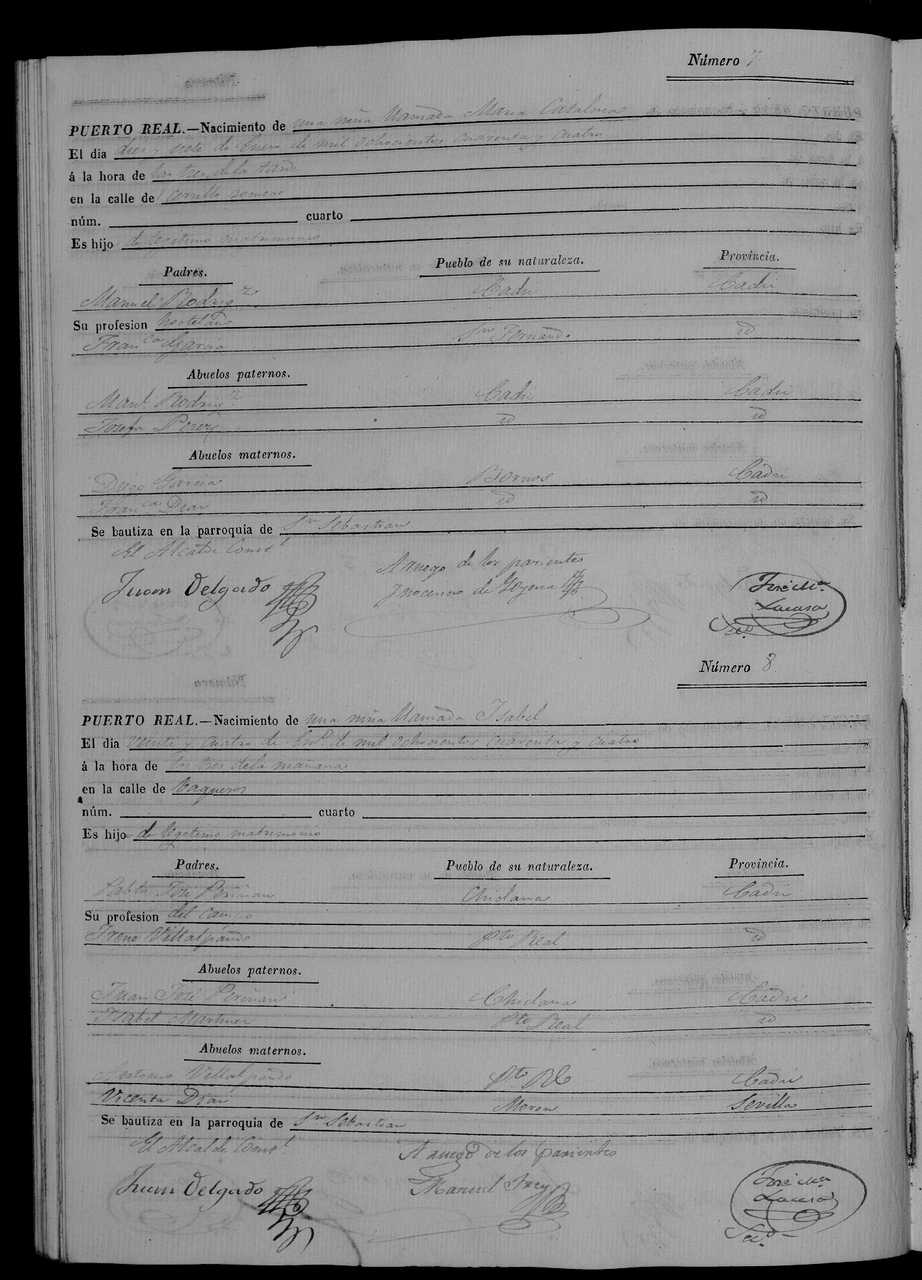 Número 7
PUERTO REAL.—Nacimiento de una niña llamada Maria
El dia diez y siete de Enero de mil ochocientos cuarenta y cuatro
á la hora de las tres de la tarde
en la calle de
núm. cuarto
Es hijo de legitimo matrimonio
Padres. Pueblo de su naturaleza. Provincia.
Manuel Rodrigz Cadiz Cadiz
Su profesion hortelano
Franca Garcia Sn Fernando id
Abuelos paternos.
Manl Rodrigz Cadiz Cadiz
Josefa Perez id id
Abuelos maternos.
Diego Garcia Bornos Cadiz
Franca Diaz id id
Se bautiza en la parroquia de Sn Sebastian
El Alcalde Const.l
A ruego de los parientes
Juan Delgado
José Ma
Lacasa
Sec.o
Número 8
PUERTO REAL.—Nacimiento de una niña llamada Isabel
El dia veinte y cuatro de Eno de mil ochocientos cuarenta y cuatro
á la hora de las tres de la mañana
en la calle de Vaqueros
núm. cuarto
Es hijo de legitimo matrimonio
Padres. Pueblo de su naturaleza. Provincia.
José Periñan Chiclana Cadiz
Su profesion del campo
Villalpando Pto Real id
Abuelos paternos.
Juan José Periñan Chiclana Cadiz
Isabel Martinez Pto Real id
Abuelos maternos.
Antonio Villalpando Pto Rl Cadiz
Vicenta Diaz Moron Sevilla
Se bautiza en la parroquia de Sn Sebastian
El Alcalde Const.l A ruego de los parientes
Juan Delgado Manuel
José Ma
Lacasa
Sec.o